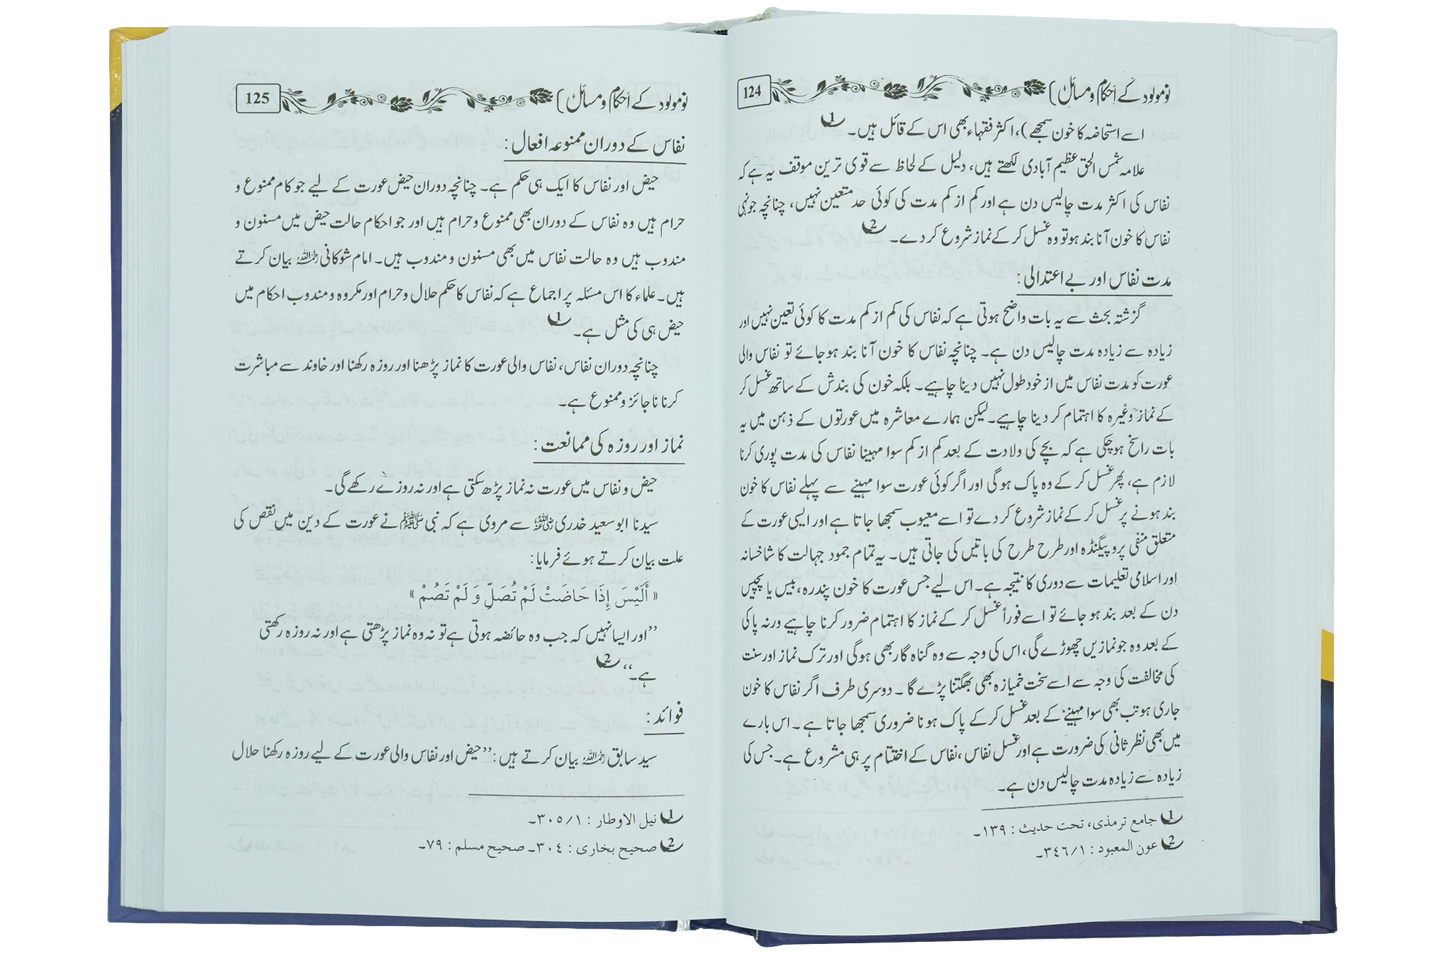 124 نومولود کے احکام و مسائل
اسے استحاضہ کا خون سمجھے)، اکثر فقہاء بھی اس کے قائل ہیں۔ 1
علامہ شمس الحق عظیم آبادی لکھتے ہیں، دلیل کے لحاظ سے قوی ترین موقف یہ ہے کہ
نفاس کی اکثر مدت چالیس دن ہے اور کم از کم مدت کی کوئی حد متعین نہیں، چنانچہ جونہی
نفاس کا خون آنا بند ہو تو وہ غسل کر کے نماز شروع کر دے۔ 2
مدت نفاس اور بے اعتدالی:
گزشتہ بحث سے یہ بات واضح ہوتی ہے کہ نفاس کی کم از کم مدت کا کوئی تعین نہیں اور
زیادہ سے زیادہ مدت چالیس دن ہے۔ چنانچہ نفاس کا خون آنا بند ہو جائے تو نفاس والی
عورت کو مدت نفاس میں از خود طول نہیں دینا چاہیے۔ بلکہ خون کی بندش کے ساتھ غسل کر
کے نماز وغیرہ کا اہتمام کر دینا چاہیے۔ لیکن ہمارے معاشرہ میں عورتوں کے ذہن میں یہ
بات راسخ ہو چکی ہے کہ بچے کی ولادت کے بعد کم از کم سوا مہینا نفاس کی مدت پوری کرنا
لازم ہے، پھر غسل کر کے وہ پاک ہو گی اور اگر کوئی عورت سوا مہینے سے پہلے نفاس کا خون
بند ہونے پر غسل کر کے نماز شروع کر دے تو اسے معیوب سمجھا جاتا ہے اور ایسی عورت کے
متعلق منفی پروپیگنڈہ اور طرح طرح کی باتیں کی جاتی ہیں۔ یہ تمام جمود جہالت کا شاخسانہ
اور اسلامی تعلیمات سے دوری کا نتیجہ ہے۔ اس لیے جس عورت کا خون پندرہ، بیس یا پچیس
دن کے بعد بند ہو جائے تو اسے فوراً غسل کر کے نماز کا اہتمام ضرور کرنا چاہیے ورنہ پاکی
کے بعد وہ جو نمازیں چھوڑے گی، اس کی وجہ سے وہ گناہ گار بھی ہوگی اور ترک نماز اور سنت
کی مخالفت کی وجہ سے اسے سخت خمیازہ بھی بھگتنا پڑے گا۔ دوسری طرف اگر نفاس کا خون
جاری ہو تب بھی سوا مہینے کے بعد غسل کر کے پاک ہونا ضروری سمجھا جاتا ہے۔ اس بارے
میں بھی نظر ثانی کی ضرورت ہے اور غسل نفاس، نفاس کے اختتام پر ہی مشروع ہے۔ جس کی
زیادہ سے زیادہ مدت چالیس دن ہے۔
1 جامع ترمذی، تحت حدیث : ۱۳۹۔
2 عون المعبود : ۳٤٦/۱۔
125 نومولود کے احکام و مسائل
نفاس کے دوران ممنوعہ افعال:
حیض اور نفاس کا ایک ہی حکم ہے۔ چنانچہ دوران حیض عورت کے لیے جو کام ممنوع و
حرام ہیں وہ نفاس کے دوران بھی ممنوع و حرام ہیں اور جو احکام حالت حیض میں مسنون و
مندوب ہیں وہ حالت نفاس میں بھی مسنون و مندوب ہیں۔ امام شوکانی رحمہ اللہ بیان کرتے
ہیں۔ علماء کا اس مسئلہ پر اجماع ہے کہ نفاس کا حکم حلال و حرام اور مکروہ و مندوب احکام میں
حیض ہی کی مثل ہے۔ 1
چنانچہ دوران نفاس، نفاس والی عورت کا نماز پڑھنا اور روزہ رکھنا اور خاوند سے مباشرت
کرنا ناجائز و ممنوع ہے۔
نماز اور روزہ کی ممانعت:
حیض و نفاس میں عورت نہ نماز پڑھ سکتی ہے اور نہ روزے رکھے گی۔
سیدنا ابو سعید خدری رضی اللہ عنہ سے مروی ہے کہ نبی ﷺ نے عورت کے دین میں نقص کی
علت بیان کرتے ہوئے فرمایا:
« أَلَيْسَ إِذَا حَاضَتْ لَمْ تُصَلِّ وَ لَمْ تَصُمْ »
’’اور ایسا نہیں کہ جب وہ حائضہ ہوتی ہے تو نہ وہ نماز پڑھتی ہے اور نہ روزہ رکھتی
ہے۔‘‘ 2
فوائد:
سید سابق رحمہ اللہ بیان کرتے ہیں: ’’حیض اور نفاس والی عورت کے لیے روزہ رکھنا حلال
1 نیل الاوطار : ۳۰۵/۱۔
2 صحیح بخاری : ۳۰٤۔ صحیح مسلم : ۷۹۔